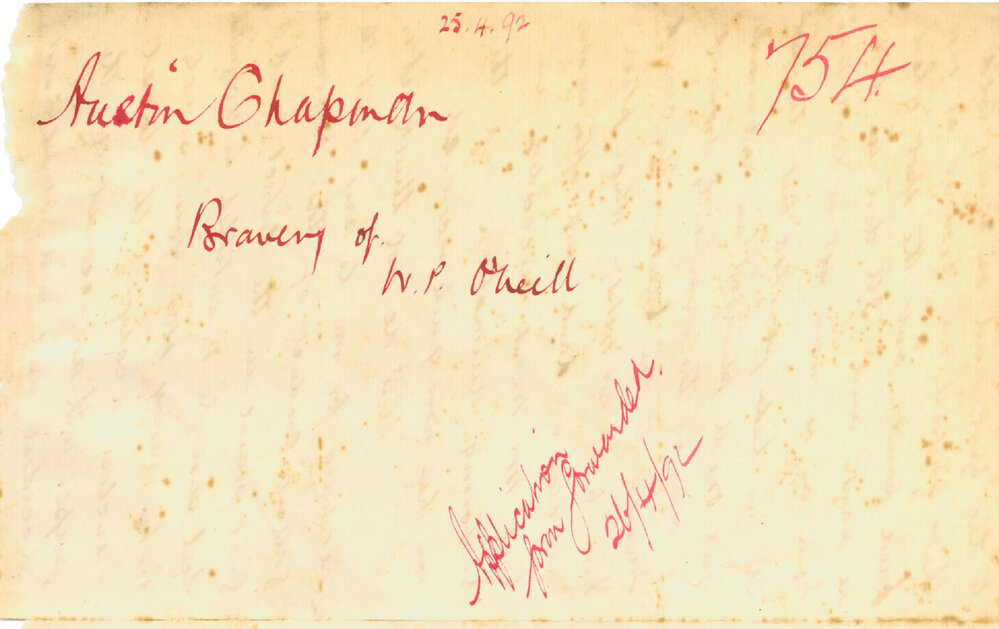 25.4.92
754
Austin Chapman
Bravery of
W. P. O'Neill
Application
form forwarded.
26/4/92